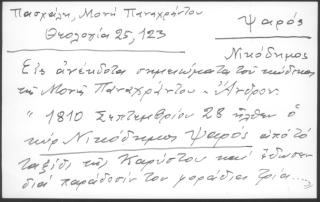 Πασχάλη, Μονή Παναχράντου
Θεολογία 25, 123
Ψαρός
Νικόδημος
Εἰς ἀνέκδοτα σημειώματα τοῦ κώδικος
τῆς Μονῆς Παναχράντου - Ἄνδρου.
" 1810 Σεπτεμβρίου 28 ἦλθεν ὁ
κὺρ Νικόδημος Ψαρός ἀπό τό
ταξίδι τῆς Καρύστου καί ἔδωσεν
διά παράδοσίν του γρόσια τρία....